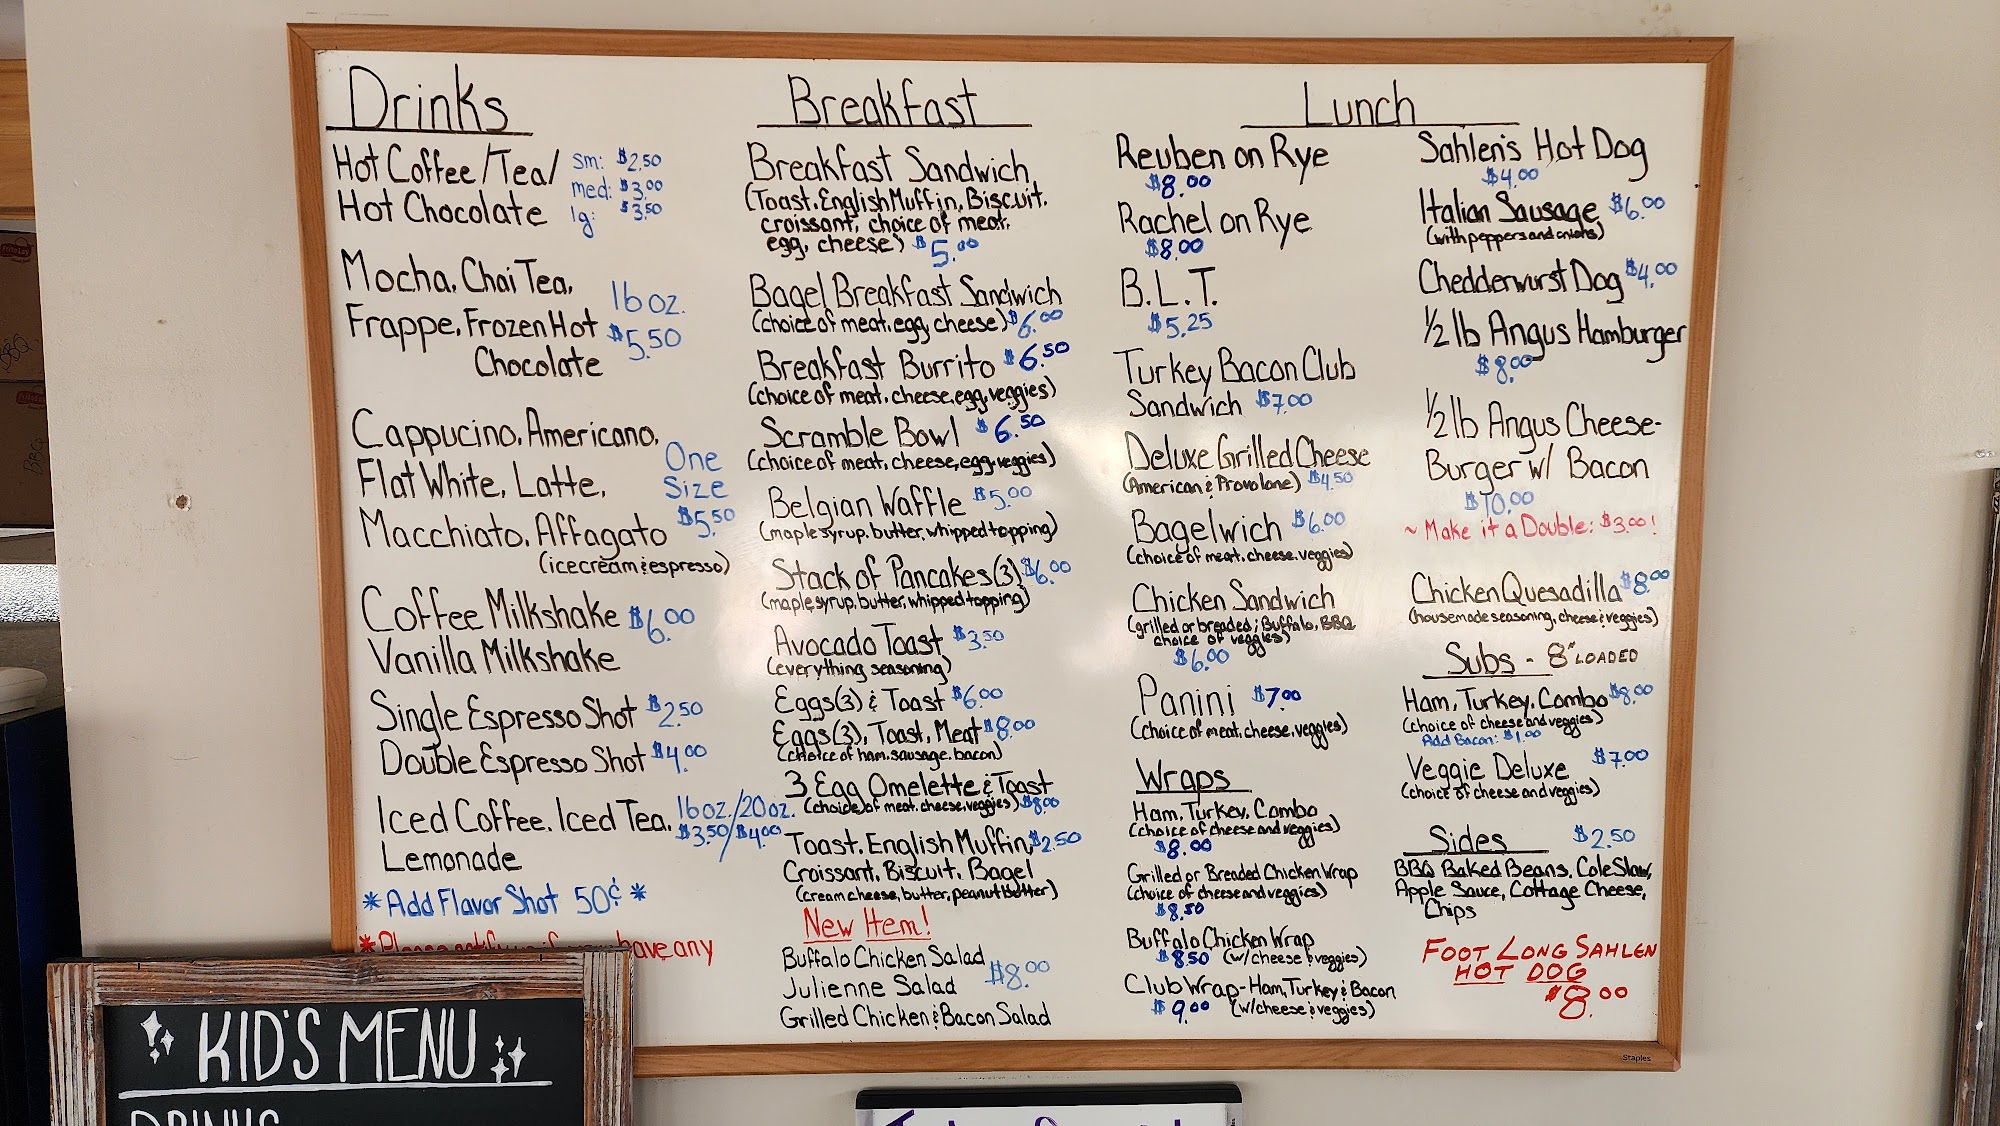 Drinks
Hot Coffee/Tea/
Hot Chocolate
Sm: $2.50
med: $3.00
lg: $3.50
Mocha, Chai Tea,
Frappe, Frozen Hot
Chocolate
16 oz.
$5.50
Cappucino, Americano,
Flat White, Latte,
Macchiato, Affagato
(icecream & espresso)
One
Size
$5.50
Coffee Milkshake $6.00
Vanilla Milkshake
Single Espresso Shot $2.50
Double Espresso Shot $4.00
Iced Coffee, Iced Tea,
Lemonade
16 oz./20 oz.
$3.50/$4.00
*Add Flavor Shot 50¢ *
*Please have any
Breakfast
Breakfast Sandwich
(Toast, English Muffin, Biscuit,
croissant, choice of meat,
egg, cheese) $5.00
Bagel Breakfast Sandwich
(choice of meat, egg, cheese) $6.00
Breakfast Burrito $6.50
(choice of meat, cheese, egg, veggies)
Scramble Bowl $6.50
(choice of meat, cheese, egg, veggies)
Belgian Waffle $5.00
(maple syrup, butter, whipped topping)
Stack of Pancakes(3) $6.00
(maple syrup, butter, whipped topping)
Avocado Toast $3.50
(everything seasoning)
Eggs(3) & Toast $6.00
Eggs(3), Toast, Meat $8.00
(choice of ham, sausage, bacon)
3 Egg Omelette & Toast
(choice of meat, cheese, veggies) $8.00
Toast, English Muffin $2.50
Croissant, Biscuit, Bagel
(cream cheese, butter, peanut butter)
New Item!
Buffalo Chicken Salad
Julienne Salad
Grilled Chicken & Bacon Salad
$8.00
Lunch
Reuben on Rye
$8.00
Rachel on Rye
$8.00
B.L.T.
$5.25
Turkey Bacon Club
Sandwich $7.00
Deluxe Grilled Cheese
(American & Provolone) $4.50
Bagelwich $6.00
(choice of meat, cheese, veggies)
Chicken Sandwich
(grilled or breaded; Buffalo, BBQ
choice of veggies)
$6.00
Panini $7.00
(choice of meat, cheese, veggies)
Wraps
Ham, Turkey, Combo
(choice of cheese and veggies)
$8.00
Grilled or Breaded Chicken Wrap
(choice of cheese and veggies)
$8.50
Buffalo Chicken Wrap
$8.50 (w/cheese & veggies)
Club Wrap - Ham, Turkey & Bacon
$9.00 (w/cheese & veggies)
Sahlen's Hot Dog
$4.00
Italian Sausage $6.00
(with peppers and onions)
Chedderwurst Dog $4.00
1/2 lb Angus Hamburger
$8.00
1/2 lb Angus Cheese-
Burger w/ Bacon
$10.00
~ Make it a Double: $3.00!
Chicken Quesadilla $8.00
(housemade seasoning, cheese & veggies)
Subs - 8" LOADED
Ham, Turkey, Combo $8.00
(choice of cheese and veggies)
Add Bacon: $1.00
Veggie Deluxe $7.00
(choice of cheese and veggies)
Sides $2.50
BBQ Baked Beans, Cole Slaw,
Apple Sauce, Cottage Cheese,
Chips
FOOT LONG SAHLEN
HOT DOG
$8.00
Staples
KID'S MENU
DRINKS